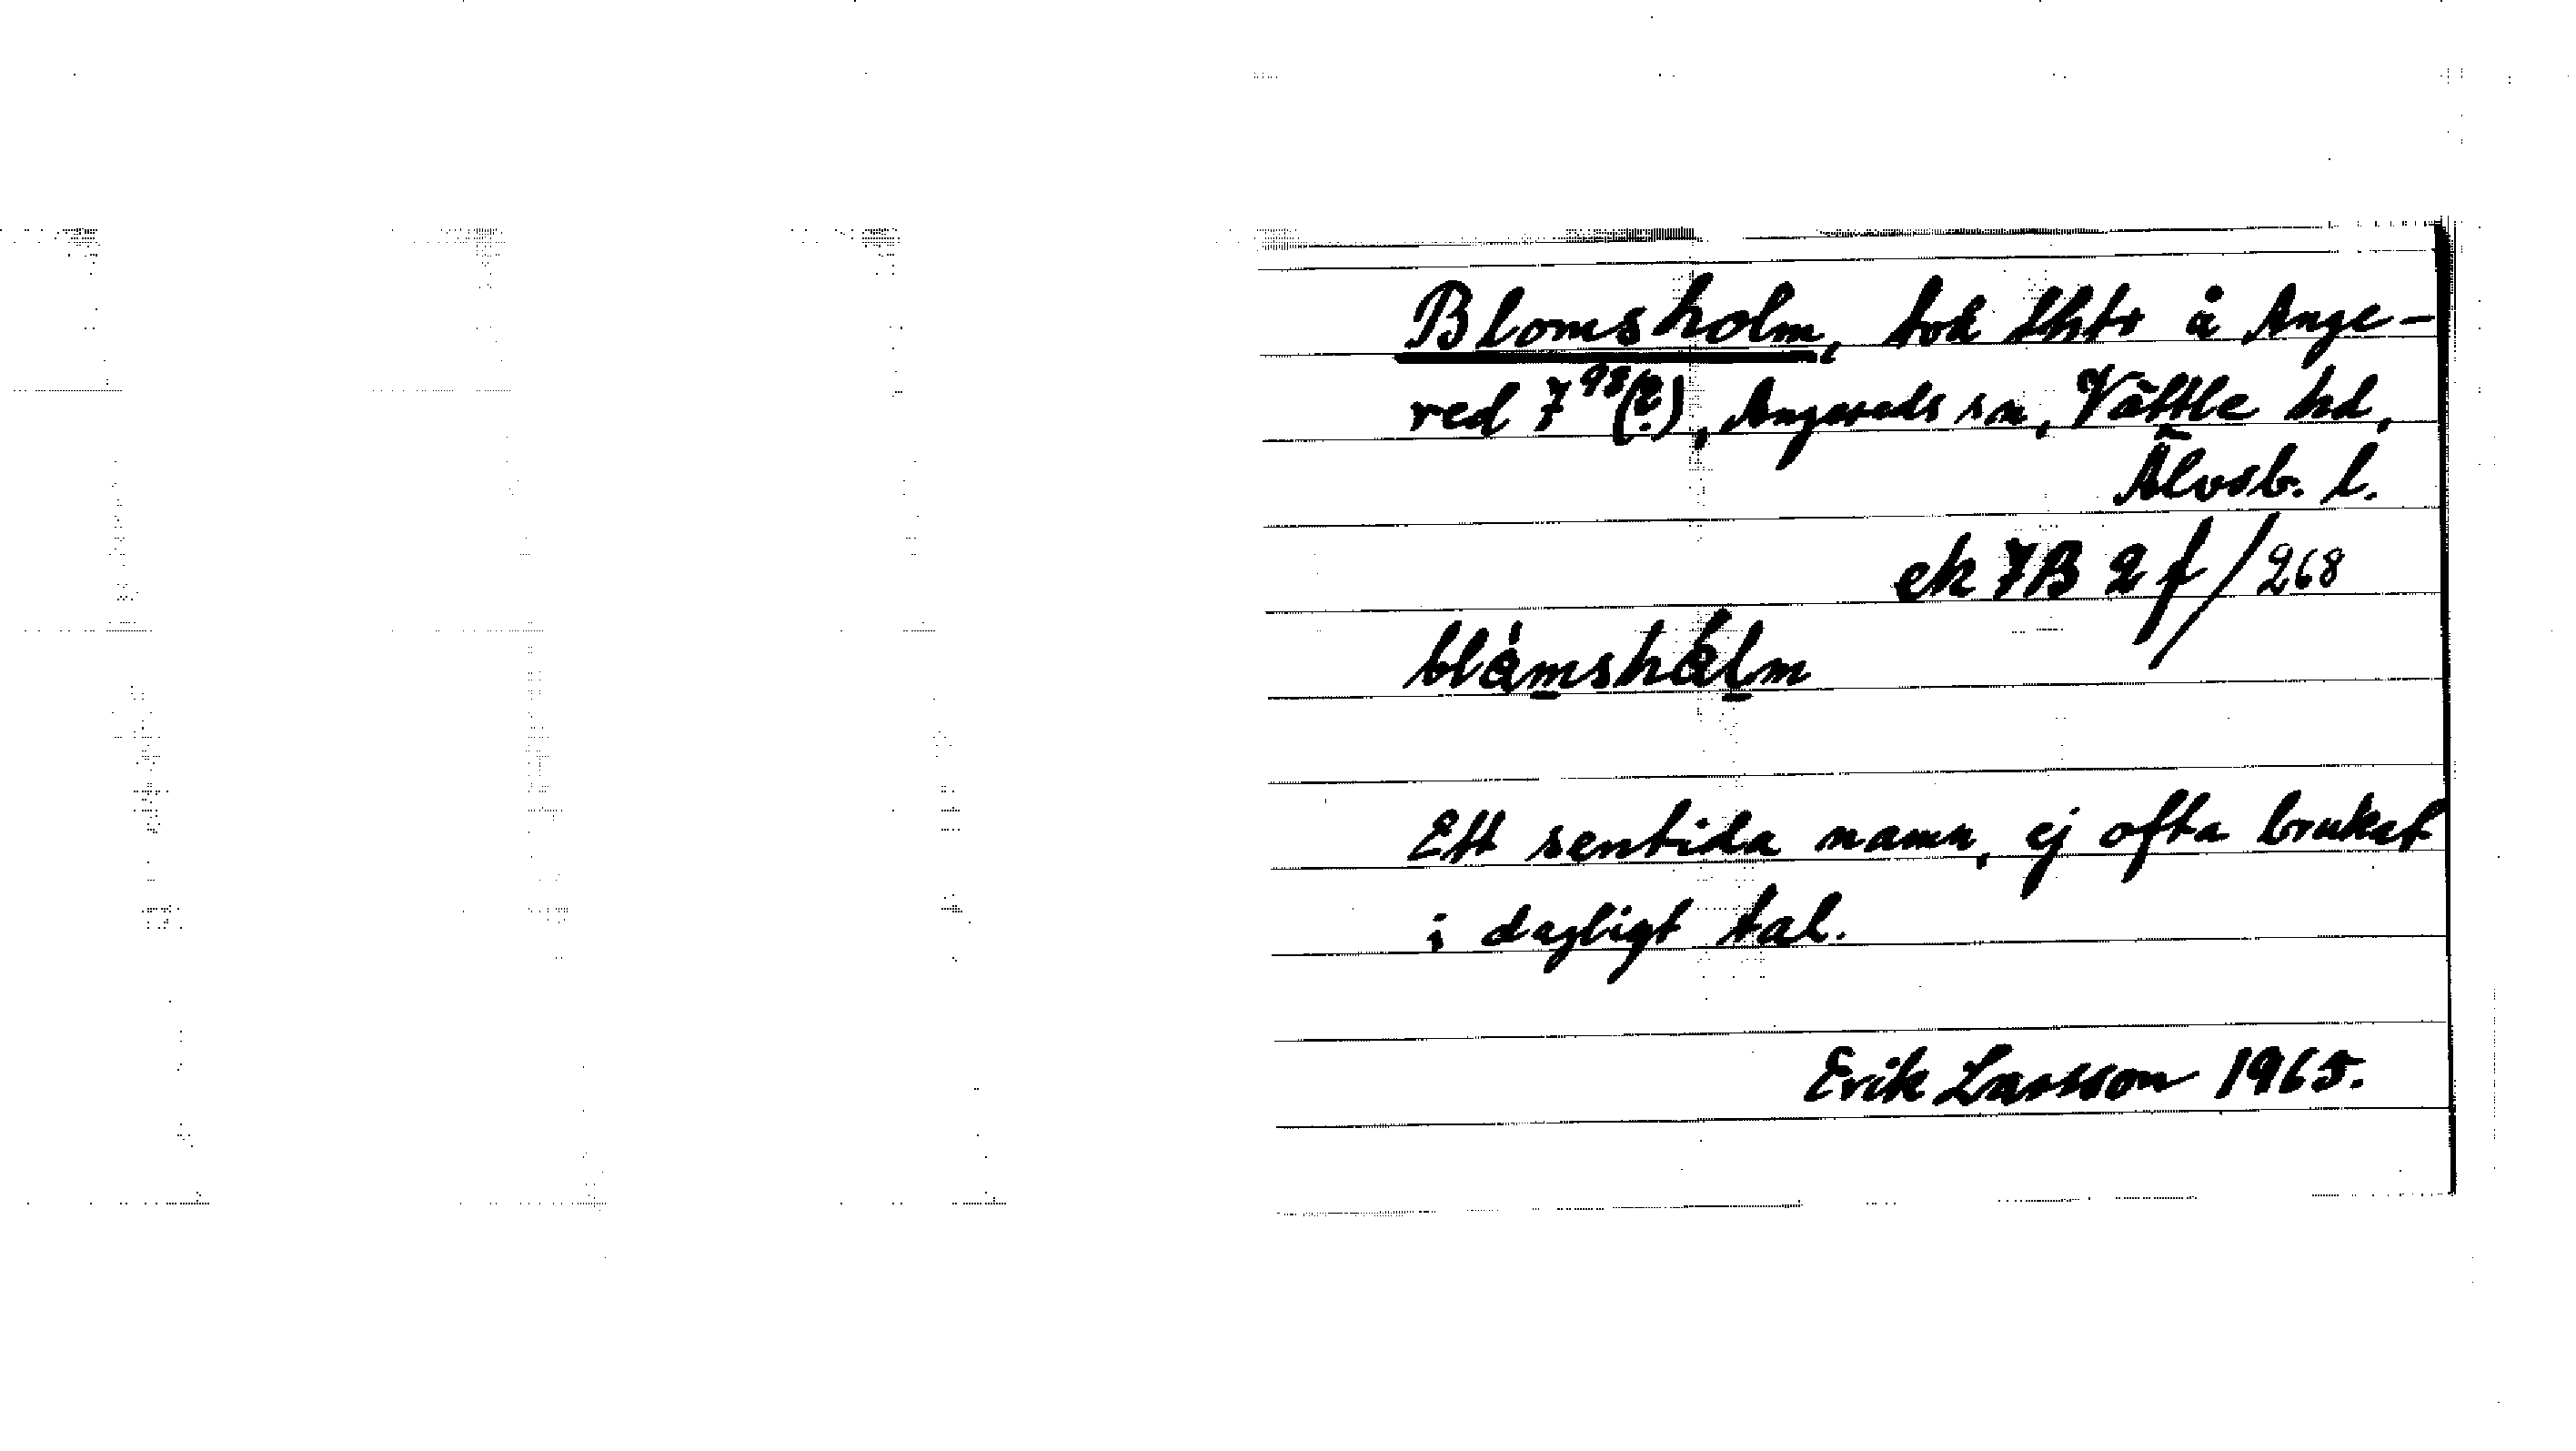 Blomsholm, tok thts å Ange-
red 7⁹⁸(?), Angereds sn, Vättle hd,
Älvsb. l.
ek 7B 2f/268
blåmshålm
Ett sentida namn, ej ofta brukat
i dagligt tal.
Erik Larsson 1965.